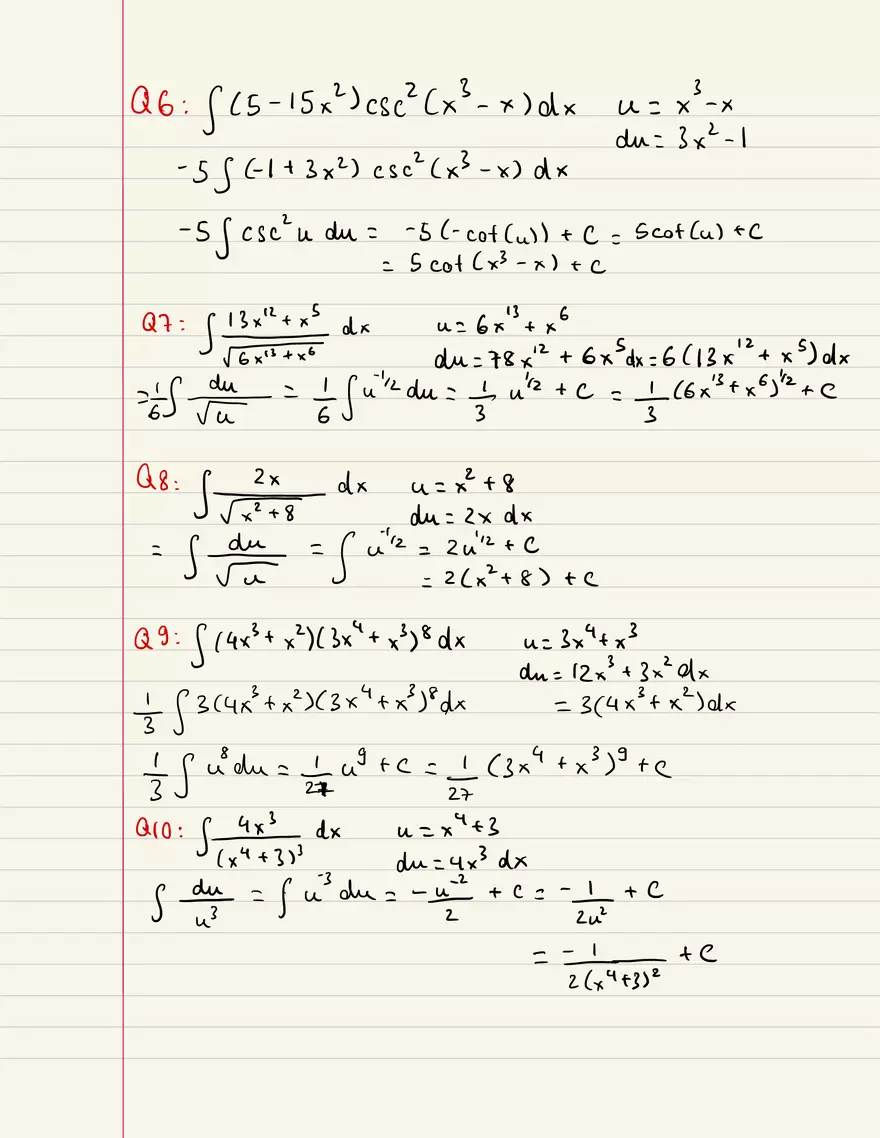 Q6: ∫(5-15x²)csc²(x³-x)dx u = x³-x
du = 3x²-1
-5∫(-1+3x²) csc²(x³-x) dx
-5∫csc²u du = -5(-cot(u)) + C = 5cot(u) + C
= 5cot(x³-x) + C
Q7: ∫ (13x¹²+x⁵)/√(6x¹³+x⁶) dx u = 6x¹³+x⁶
du = 78x¹² + 6x⁵dx = 6(13x¹²+x⁵)dx
= 1/6 ∫ du/√u = 1/6 ∫u^(-1/2) du = 1/3 u^(1/2) + C = 1/3 (6x¹³+x⁶)^(1/2) + C
Q8: ∫ 2x/√(x²+8) dx u = x²+8
du = 2x dx
= ∫ du/√u = ∫u^(-1/2) = 2u^(1/2) + C
= 2(x²+8) + C
Q9: ∫(4x³+x²)(3x⁴+x³)⁸dx u = 3x⁴+x³
du = 12x³+3x²dx
1/3 ∫3(4x³+x²)(3x⁴+x³)⁸dx = 3(4x³+x²)dx
1/3 ∫u⁸du = 1/27 u⁹ + C = 1/27 (3x⁴+x³)⁹ + C
Q10: ∫ 4x³/(x⁴+3)³ dx u = x⁴+3
du = 4x³ dx
∫ du/u³ = ∫u⁻³ du = -u⁻²/2 + C = -1/(2u²) + C
= -1/(2(x⁴+3)²) + C